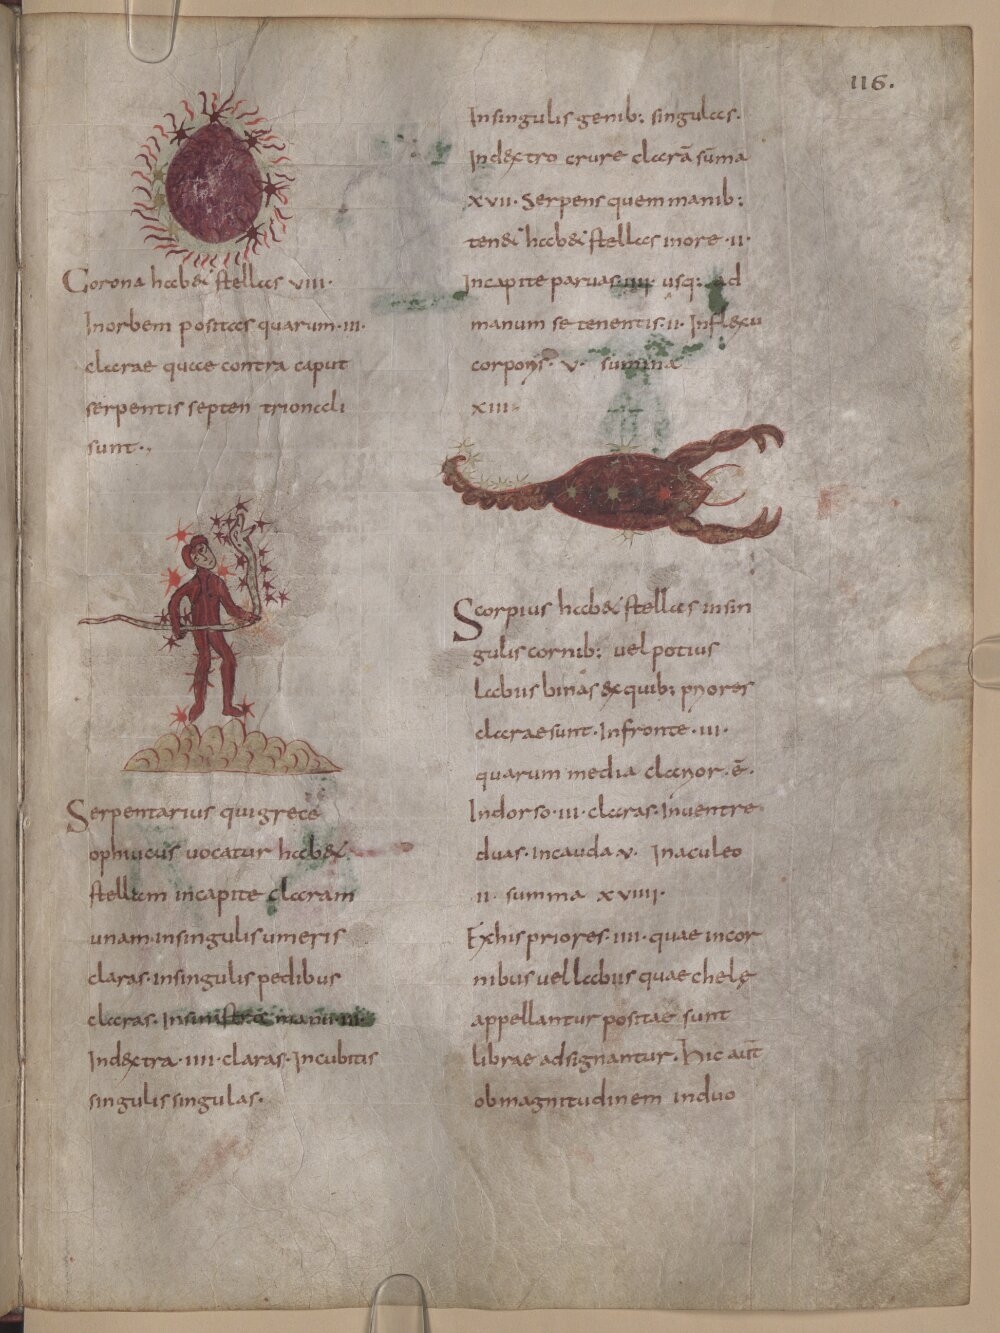 116.
Corona habet stellas viii·
Inorbem positas quarum·iii·
clarae quae contra caput
serpentis septen trionali
sunt·,
Serpentarius qui grece
ophiucus uocatur habet
stellam incapite claram
unam·insingulis umeris
claras·insingulis pedibus
claras·Insinistra manu·iii·
Indextra·iiii·claras·Incubitis
singulis singulas·
Insingulis genib: singulas·
Indextro crure clarā sūma
xvii· Serpens quem manib:
tenet habet stellas inore·ii·
Incapite paruas·iiii· usq: ad
manum se tenentis·ii· Inflexu
corporis· v· summa
xiii·
Scorpius habet stellas insin
gulis cornib: uel potius
labiis binas ex quib: priores
clarae sunt·Infronte·iii·
quarum media clarior·ē·
Indorso·iii·claras·Inuentre
duas·incauda·v· Inaculeo
ii· summa xviiii·
Ex his priores·iiii·quae incor
nibus uel labiis quae chelę
appellantur positae sunt
librae adsignantur·Hic aūt
ob magnitudinem induo